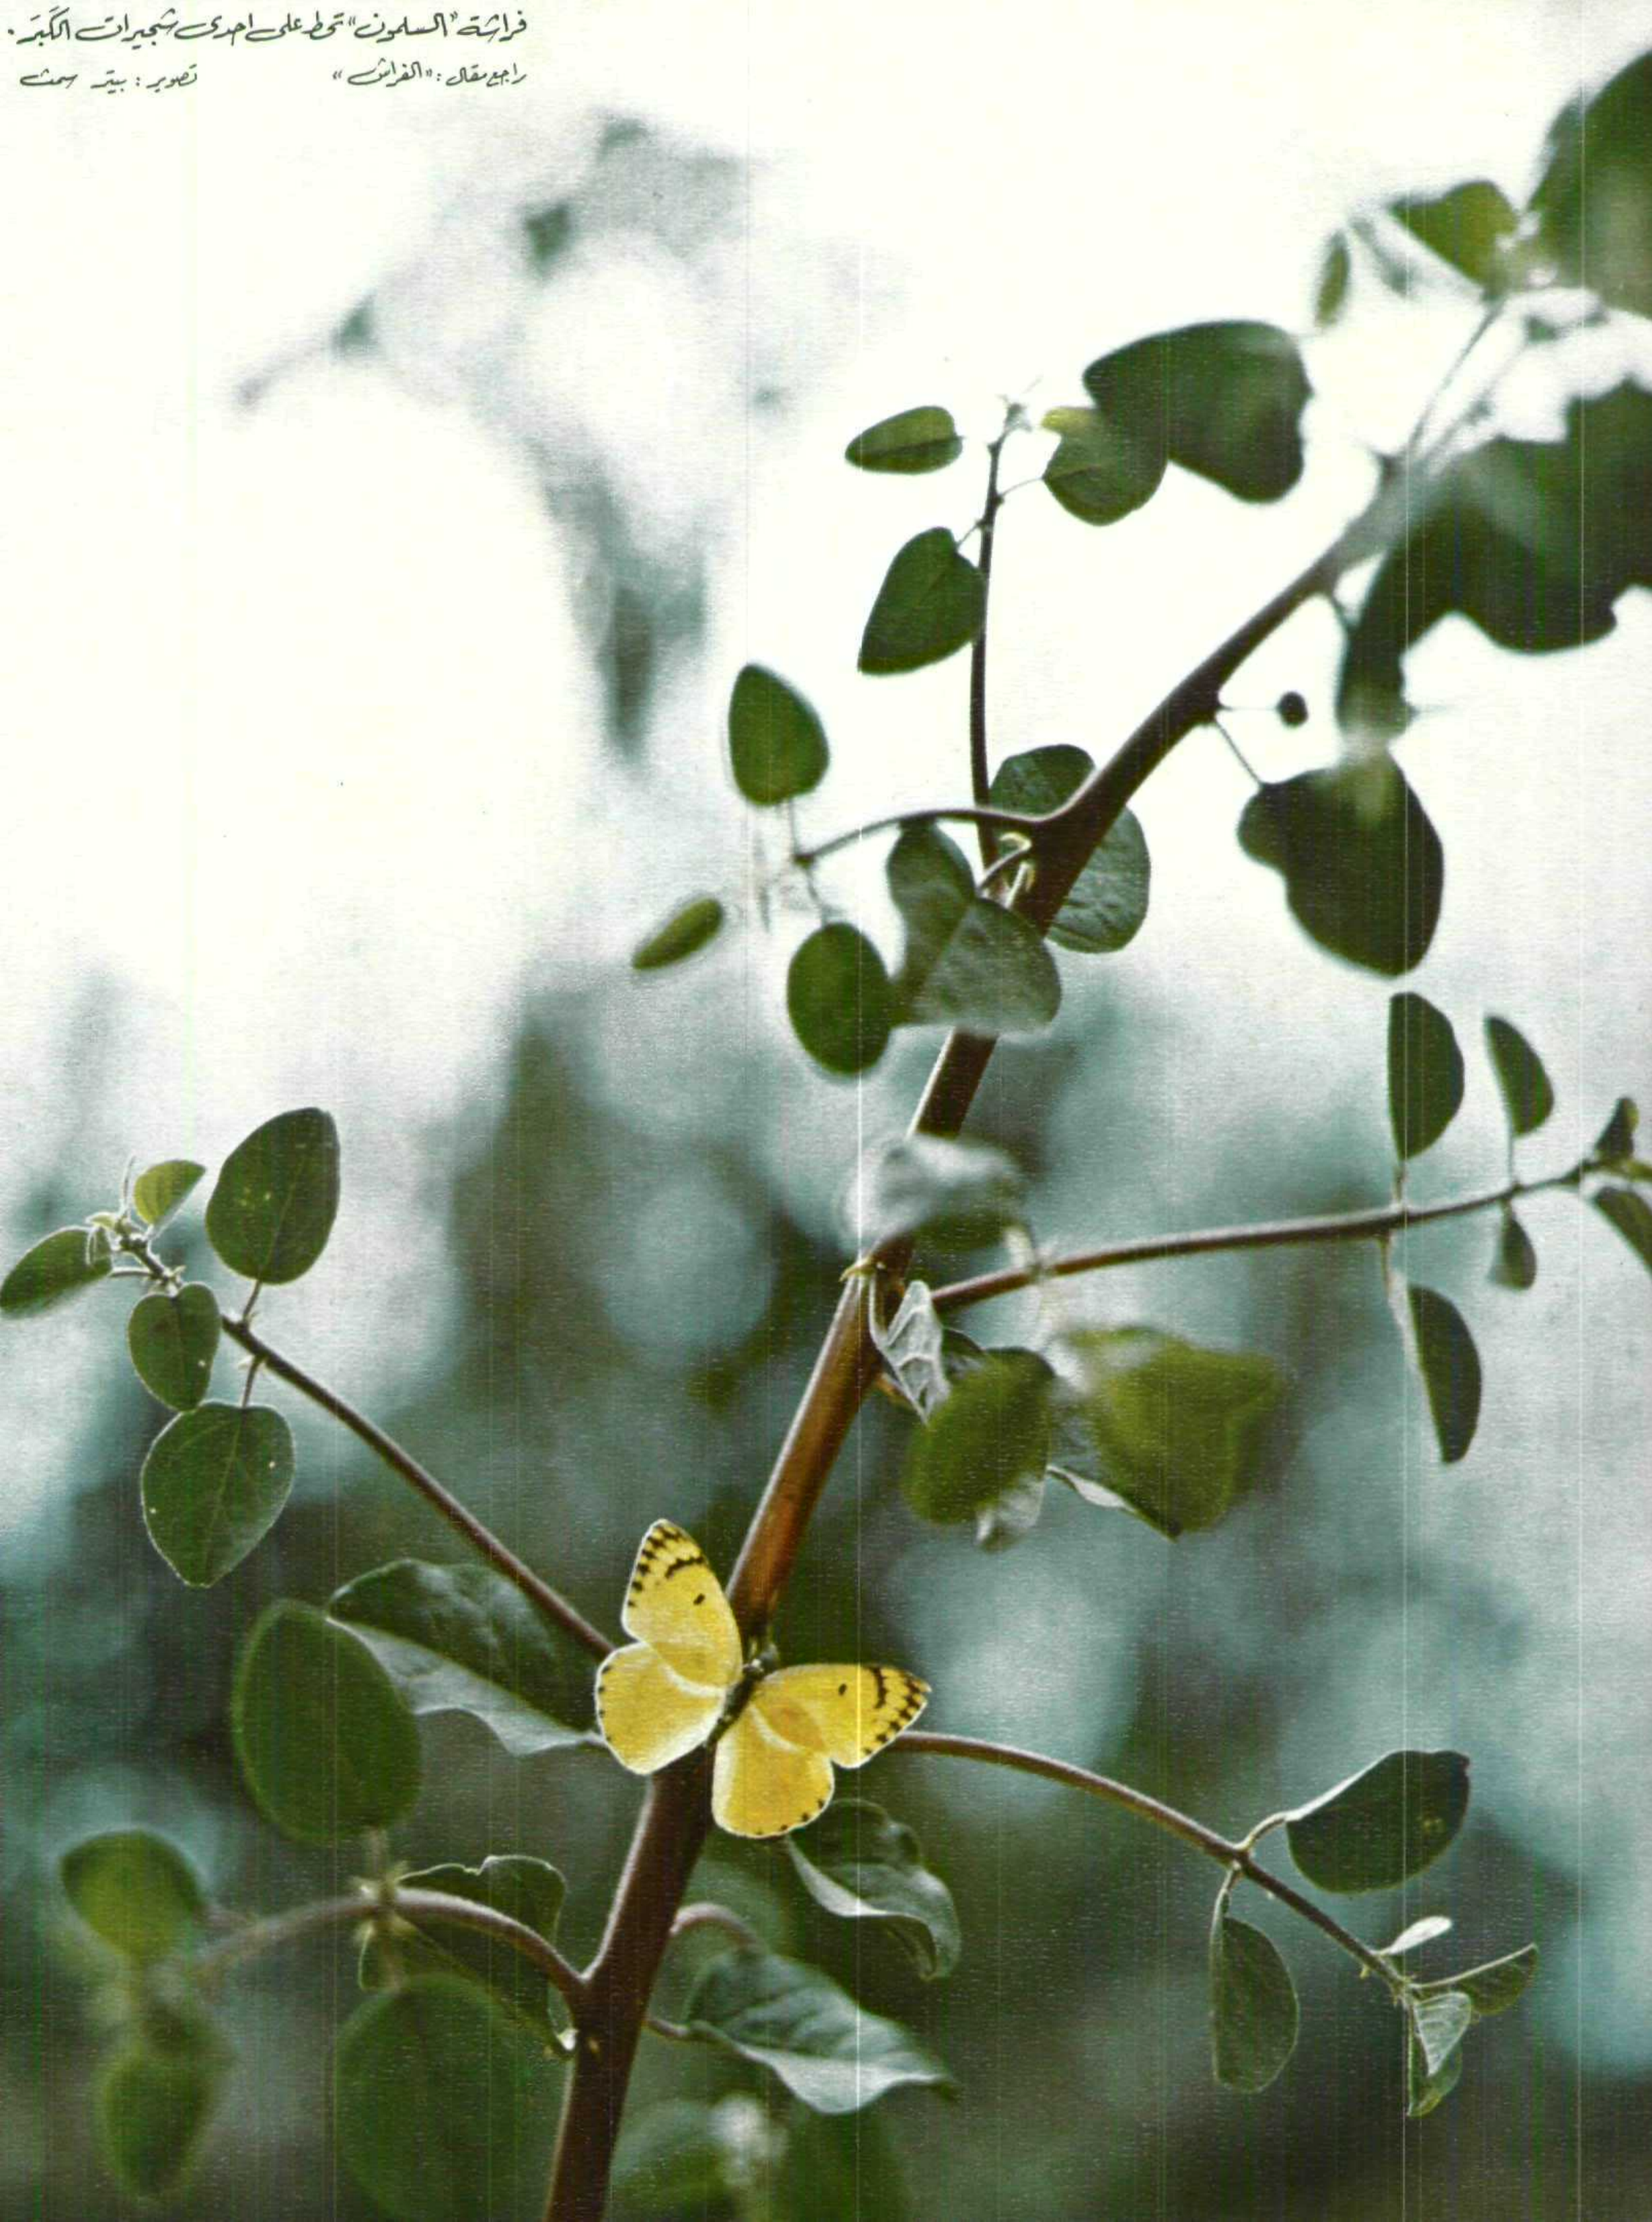 فراشة "السلمون" تحط على احدى شجيرات الكَبَر.
راجع مقال: "الفراش" تصوير: بيتر سمث